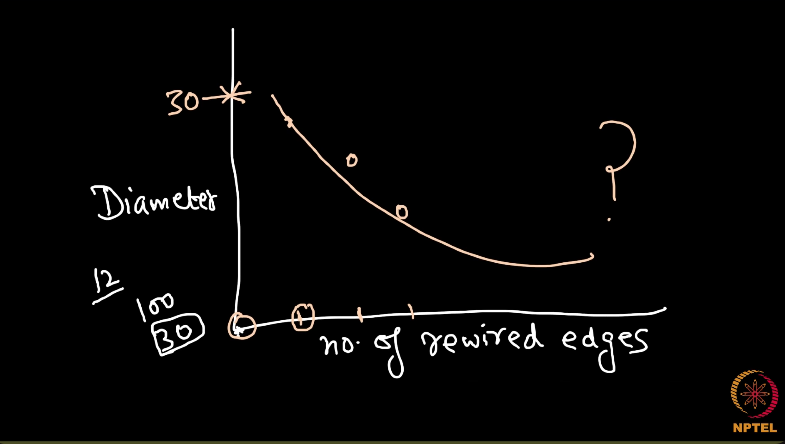 30
Diameter
12
100
30
0
1
no. of rewired edges
?
NPTEL